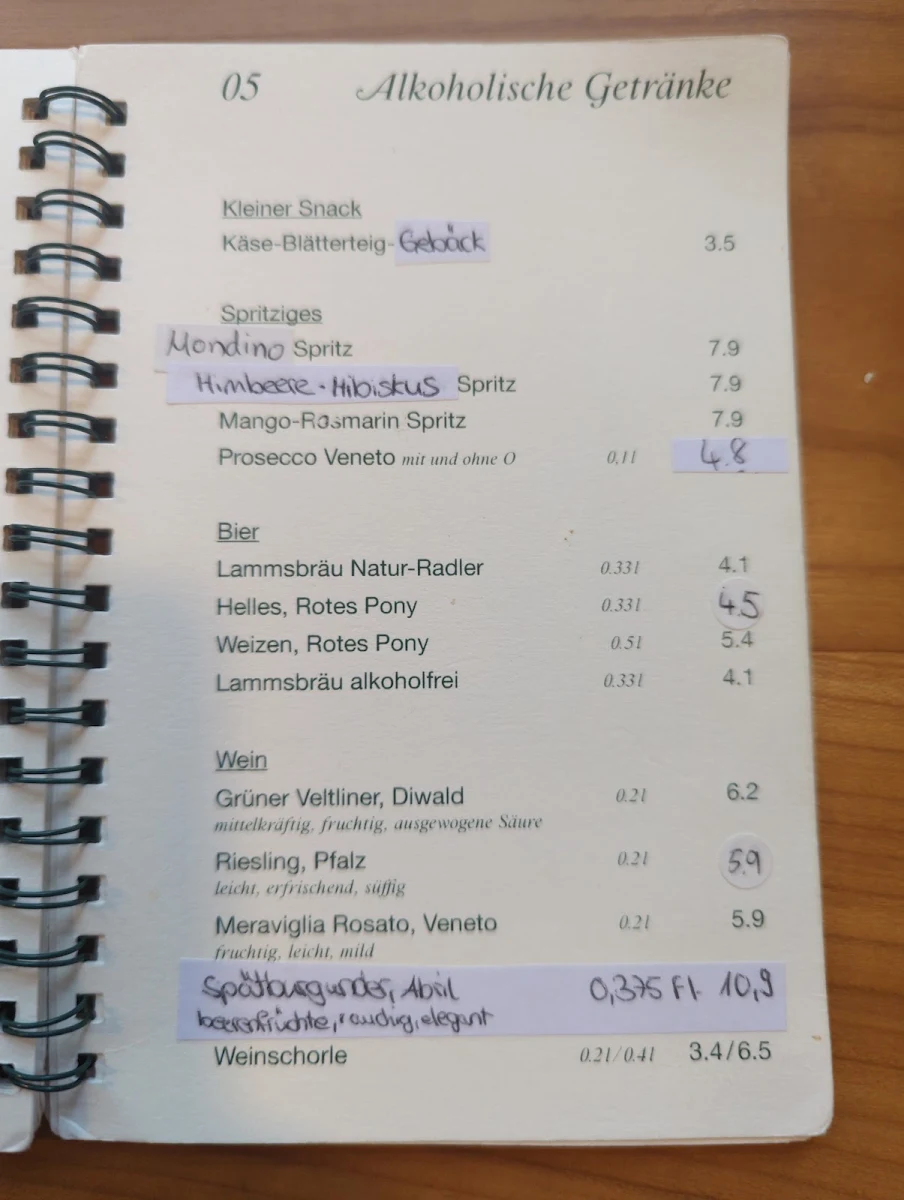 05 Alkoholische Getränke
Kleiner Snack
Käse-Blätterteig-Gebäck 3.5
Spritziges
Mondino Spritz 7.9
Himbeere-Hibiskus Spritz 7.9
Mango-Rosmarin Spritz 7.9
Prosecco Veneto mit und ohne O 0,1l 4.8
Bier
Lammsbräu Natur-Radler 0.33l 4.1
Helles, Rotes Pony 0.33l 4.5
Weizen, Rotes Pony 0.5l 5.4
Lammsbräu alkoholfrei 0.33l 4.1
Wein
Grüner Veltliner, Diwald 0.2l 6.2
mittelkräftig, fruchtig, ausgewogene Säure
Riesling, Pfalz 0.2l 5.9
leicht, erfrischend, süffig
Meraviglia Rosato, Veneto 0.2l 5.9
fruchtig, leicht, mild
Spätburgunder, Abril 0,375 Fl. 10,9
beerenfrüchte, rauchig, elegant
Weinschorle 0.2l/0.4l 3.4/6.5